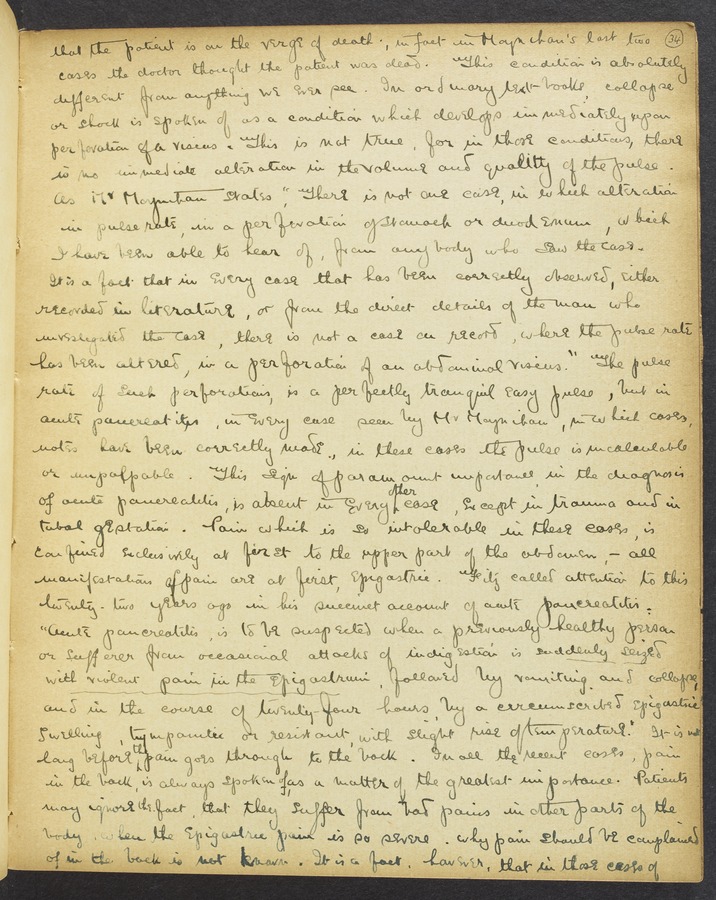 that the patient is on the verge of death; in fact in Moynihan's last two (34)
cases the doctor thought the patient was dead. This condition is absolutely
different from anything we ever see. In ordinary text-books, collapse
or shock is spoken of as a condition which develops immediately upon
perforation of a viscus. This is not true, for in those conditions, there
is no immediate alteration in the volume and quality of the pulse.
As Mr Moynihan states, "There is not one case, in which alteration
in pulse rate, in a perforation of stomach or duodenum, which
I have been able to hear of, from anybody who saw the case.
It is a fact that in every case that has been correctly observed, either
recorded in literature, or from the direct details of the man who
investigated the case, there is not a case on record, where the pulse rate
has been altered, in a perforation of an abdominal viscus." The pulse
rate of such perforations, is a perfectly tranquil easy pulse, but in
acute pancreatitis, in every case seen by Mr Moynihan, in which cases,
notes have been correctly made, in these cases the pulse is incalculable
or impalpable. This sign of paramount importance in the diagnosis
of acute pancreatitis, is absent in every other case, except in trauma and in
tubal gestation. Pain which is so intolerable in these cases, is
confined exclusively at first to the upper part of the abdomen, - all
manifestations of pain are at first, Epigastric. Fitz called attention to this
twenty-two years ago in his succinct account of acute pancreatitis.
"Acute pancreatitis, is to be suspected when a previously healthy person
or sufferer from occasional attacks of indigestion is suddenly seized
with violent pain in the Epigastrium, followed by vomiting and collapse,
and in the course of twenty-four hours, by a circumscribed Epigastric
swelling, tympanitic or resistant, with slight rise of temperature." It is not
long before the pain goes through to the back. In all the recent cases, pain
in the back, is always spoken of as a matter of the greatest importance. Patients
may ignore the fact, that they suffer from bad pains in other parts of the
body, when the Epigastric pain is so severe. Why pain should be complained
of in the back is not known. It is a fact, however, that in those cases of